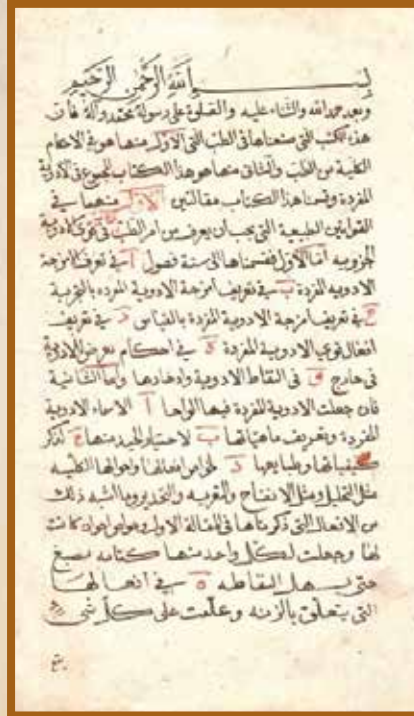 بسم الله الرحمن الرحيم
وبعد حمد الله والثناء عليه والصلوة على رسوله محمد وآله فان
هذه الكتب التي صنعناها في الطب التي الاول منها هو في الاحكام
الكلية من الطب والثاني منها هو هذا الكتاب المجموع في الادوية
المفردة وقسمنا هذا الكتاب مقالتين الاولى منهما في
القوانين الطبيعية التي يجب ان يعرف من امر الطب في قوى الادوية
الجزويه اما الاول فقسمناها الى ستة فصول ا في تعرف امزجة
الادويه المفردة ب في تعريف امزجة الادوية المفرده بالتجربة
ج في تعريف امزجة الادوية المفردة بالقياس د في تعريف
افعال قوي الادوية المفردة ه في احكام تعرض للادوية
في خارج و في التقاط الادوية وادخارها واما الثانية
فان جعلت الادوية المفردة فيها الواحا ا الاسماء الادوية
المفردة وتعريف ماهياتها ب لاختيار الجيد منها ج لذكر
كيفياتها وطبايعها د لخواص افعالها وخواصها الكليه
مثل التحليل ومثل الانضاج والتغريه والتخدير وما اشبه ذلك
من الافعال التي ذكرناها في المقالة الاولى وخواص اخران كانت
لها وجعلت لكل واحد منها كتابه بصبغ
حتى يسهل التقاطه ه في افعالها
التي يتعلق بالزينه وعلمت على كل شي